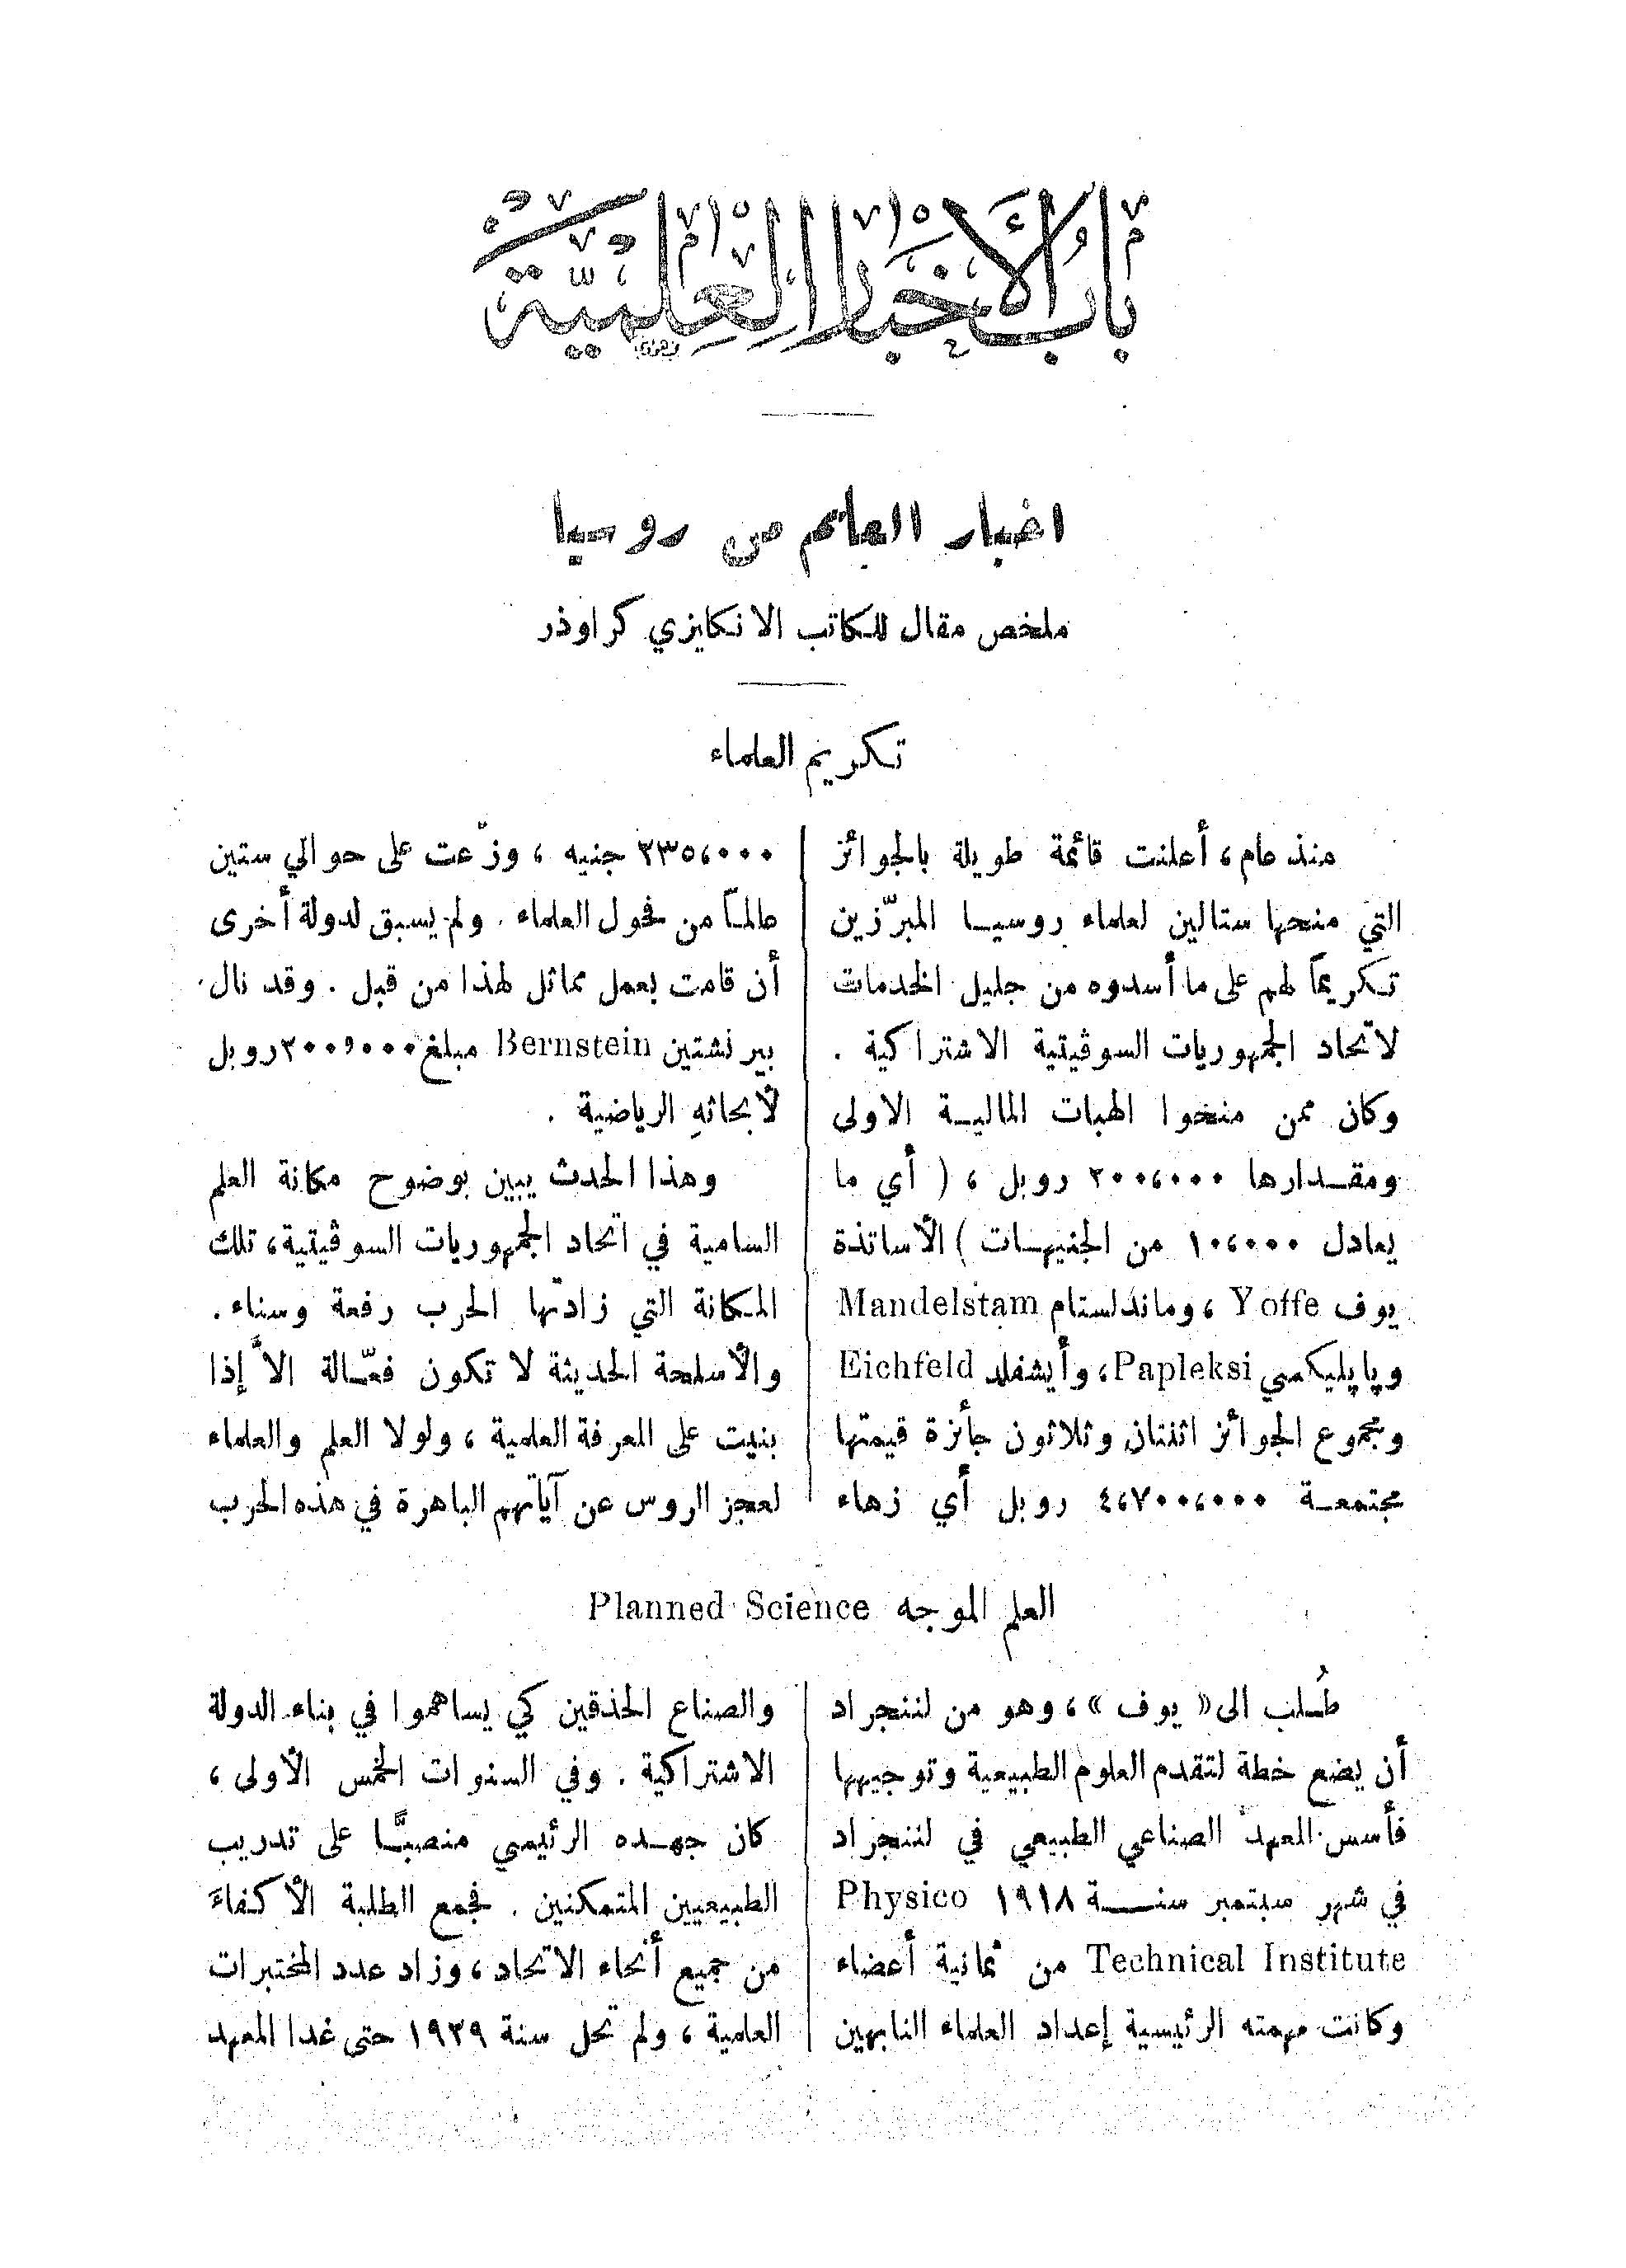 باب الأخبار العلمية
اخبار العلم من روسيا
ملخص مقال للكاتب الانكليزي كراوذر
تكريم العلماء
منذ عام، أعلنت قائمة طويلة بالجوائز
التي منحها ستالين لعلماء روسيا المبرّزين
تكريماً لهم على ما أسدوه من جليل الخدمات
لاتحاد الجمهوريات السوڤيتية الاشتراكية .
وكان ممن منحوا الهبات المالية الاولى
ومقدارها ٢٠٠،٠٠٠ روبل ، ( أي ما
يعادل ١٠،٠٠٠ من الجنيهات ) الأساتذة
يوف Yoffe ، وماندلستام Mandelstam
وپاپليكسي Papleksi، وأيشفلد Eichfeld
ومجموع الجوائز اثنتان وثلاثون جأئزة قيمتها
مجتمعة ٤،٧٠٠،٠٠٠ روبل أي زهاء
٢٣٥،٠٠٠ جنيه ، وزّعت على حوالي ستين
عالماً من فحول العلماء . ولم يسبق لدولة أخرى
أن قامت بعمل مماثل لهذا من قبل . وقد نال
بيرنشتين Bernstein مبلغ ٢٠٠,٠٠٠ روبل
لأبحاثهِ الرياضية .
وهذا الحدث يبين بوضوح مكانة العلم
السامية في اتحاد الجمهوريات السوڤيتية، تلك
المكانة التي زادتها الحرب رفعة وسناء .
والأسلحة الحديثة لا تكون فعّالة الاَّ إذا
بنيت على المعرفة العلمية ، ولولا العلم والعلماء
لعجز الروس عن آياتهم الباهرة في هذه الحرب
العلم الموجه Planned Science
طُلب الى « يوف » ، وهو من لننجراد
أن يضع خطة لتقدم العلوم الطبيعية وتوجيهها
فأسس المعهد الصناعي الطبيعي في لننجراد
في شهر سبتمبر سنة ١٩١٨ Physico
Technical Institute من ثمانية أعضاء
وكانت مهمته الرئيسية إعداد العلماء النابهين
والصناع الحذقين كي يساهموا في بناء الدولة
الاشتراكية . وفي السنوات الخمس الأولى ،
كان جهده الرئيسي منصبًّا على تدريب
الطبيعيين المتمكنين . فجمع الطلبة الأكفاءَ
من جميع أنحاء الاتحاد ، وزاد عدد المختبرات
العلمية ، ولم تحل سنة ١٩٣٩ حتى غدا المعهد